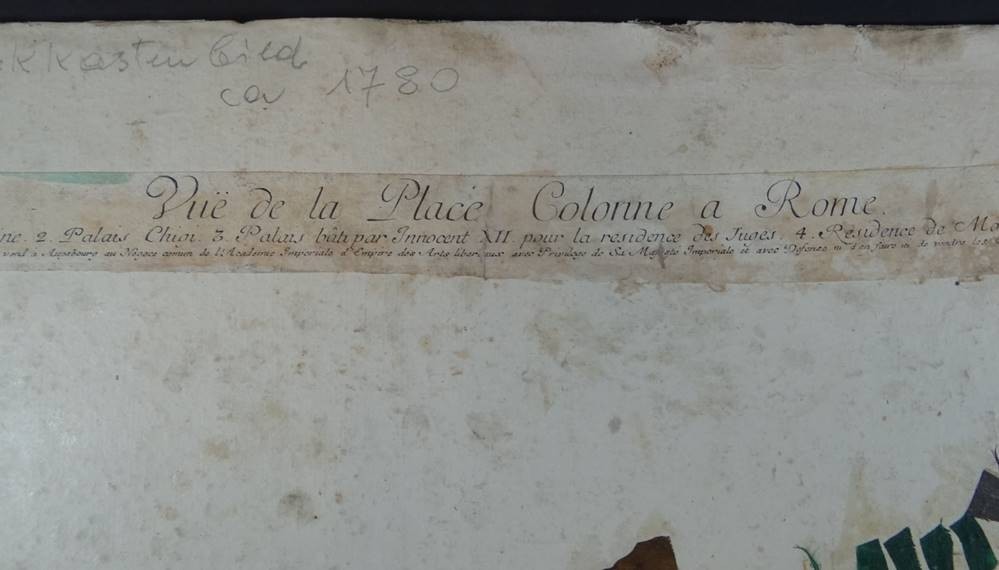 kkasten bild
ca 1780
Vuë de la Place Colonne a Rome.
ne. 2. Palais Chigi. 3. Palais bâti par Innocent XII. pour la residence des Juges. 4. Résidence de Mo
vend à Augsbourg au Négoce comun de l'Academie Imperiale d'Empire des Arts liberaux avec Privilege de Sa Majesté Imperiale et avec Defense ni d'en faire ni de vendre les